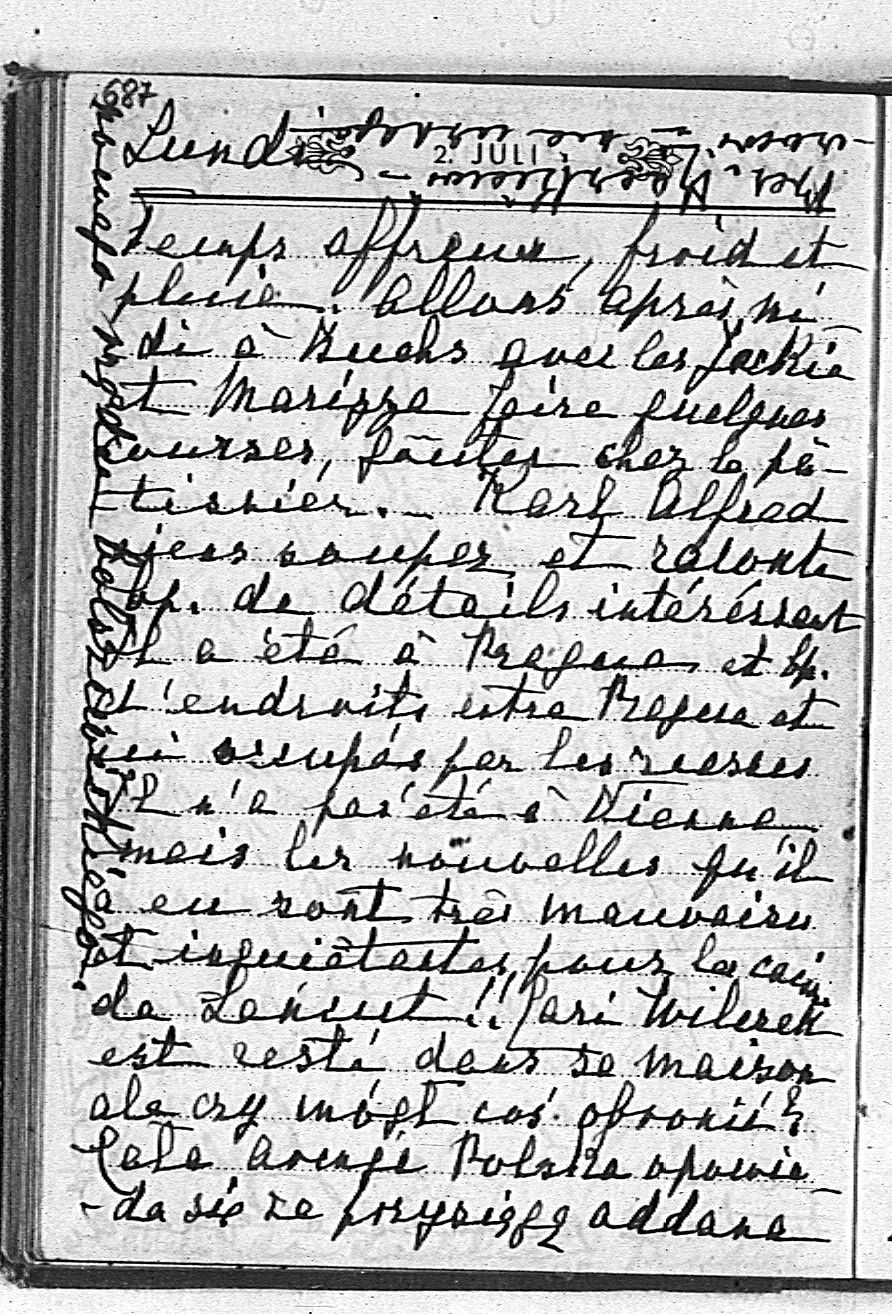 687
Lundi
2. JULI
temps affreux, froid et
pluie. Allons après mi
di à Buchs avec les Jackie
et Marizza faire quelques
courses, goûter chez le pâ-
tissier. – Karl Alfred
viens souper et raconte
bp. de détails intéréssant
Il a été à Prague et bp.
d'endroits entre Prague et
ici occupés par les russes
Il n'a pas été à Vienne
mais les nouvelles qu'il
a eu sont très mauvaises
et inquiétantes pour les
de Łańcut!! Jari Wilczek
est resté dans sa maison
ale czy mógł coś obronić?
Cała Armja Polska opowia
-da się za przysięgą oddana